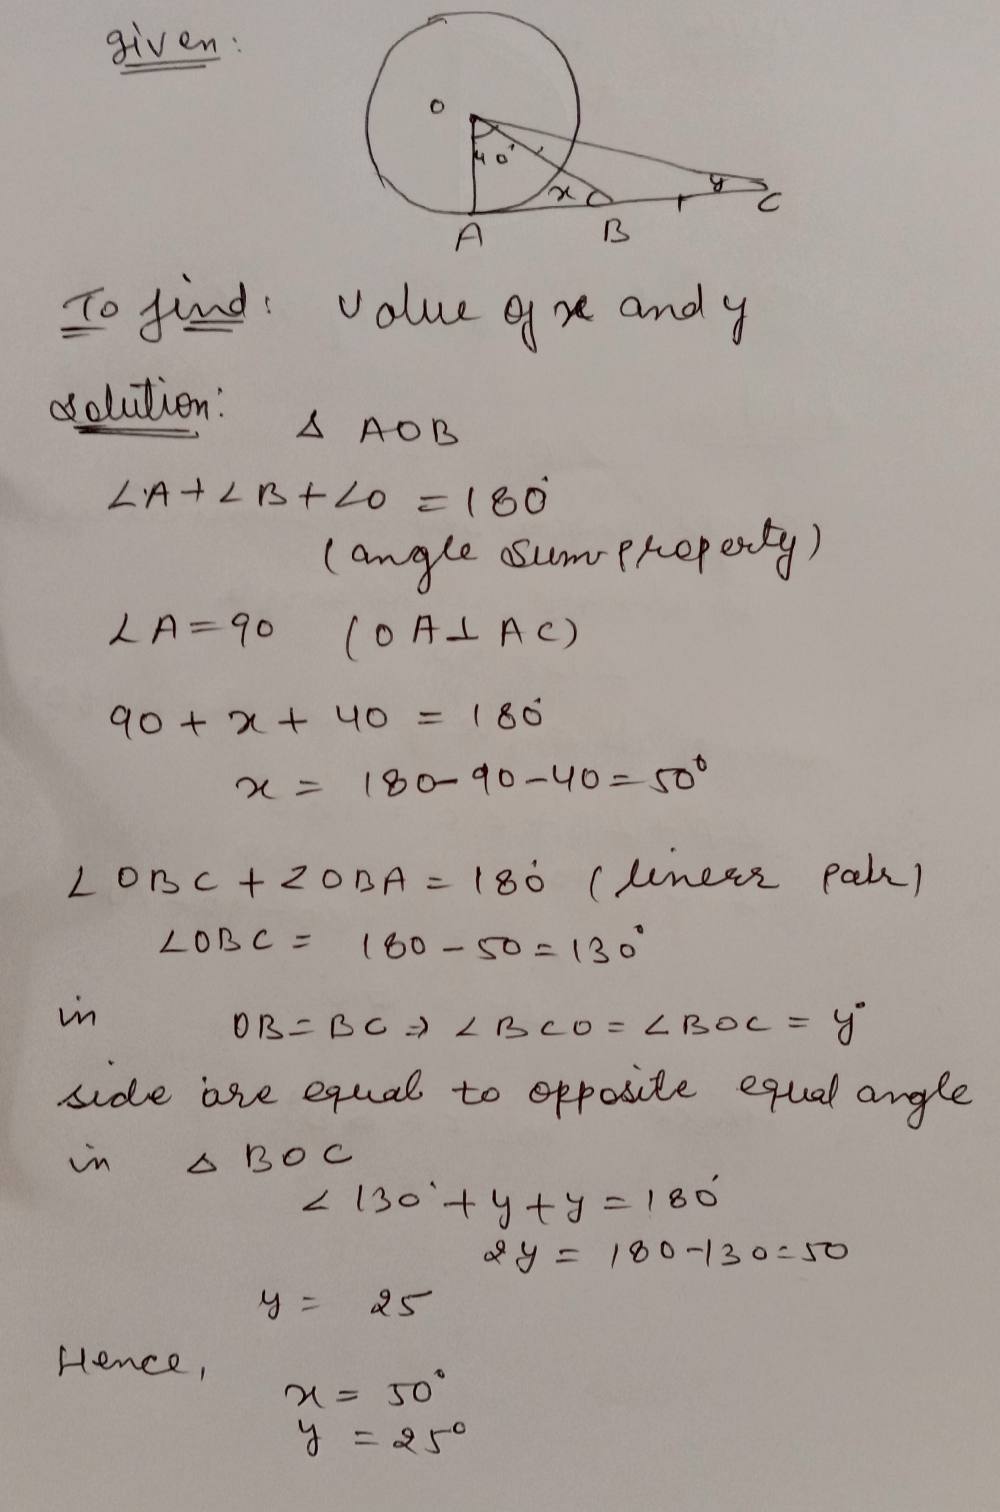 given:
O
40°
x
y
A
B
C
To find: value of x and y
solution:
Δ AOB
∠A + ∠B + ∠O = 180°
(angle sum property)
∠A = 90 (OA ⊥ AC)
90 + x + 40 = 180°
x = 180-90-40 = 50°
∠OBC + ∠OBA = 180° (linear pair)
∠OBC = 180 - 50 = 130°
in OB = BC ⇒ ∠BCO = ∠BOC = y°
side are equal to opposite equal angle
in Δ BOC
∠130° + y + y = 180°
2y = 180-130 = 50
y = 25
Hence,
x = 50°
y = 25°